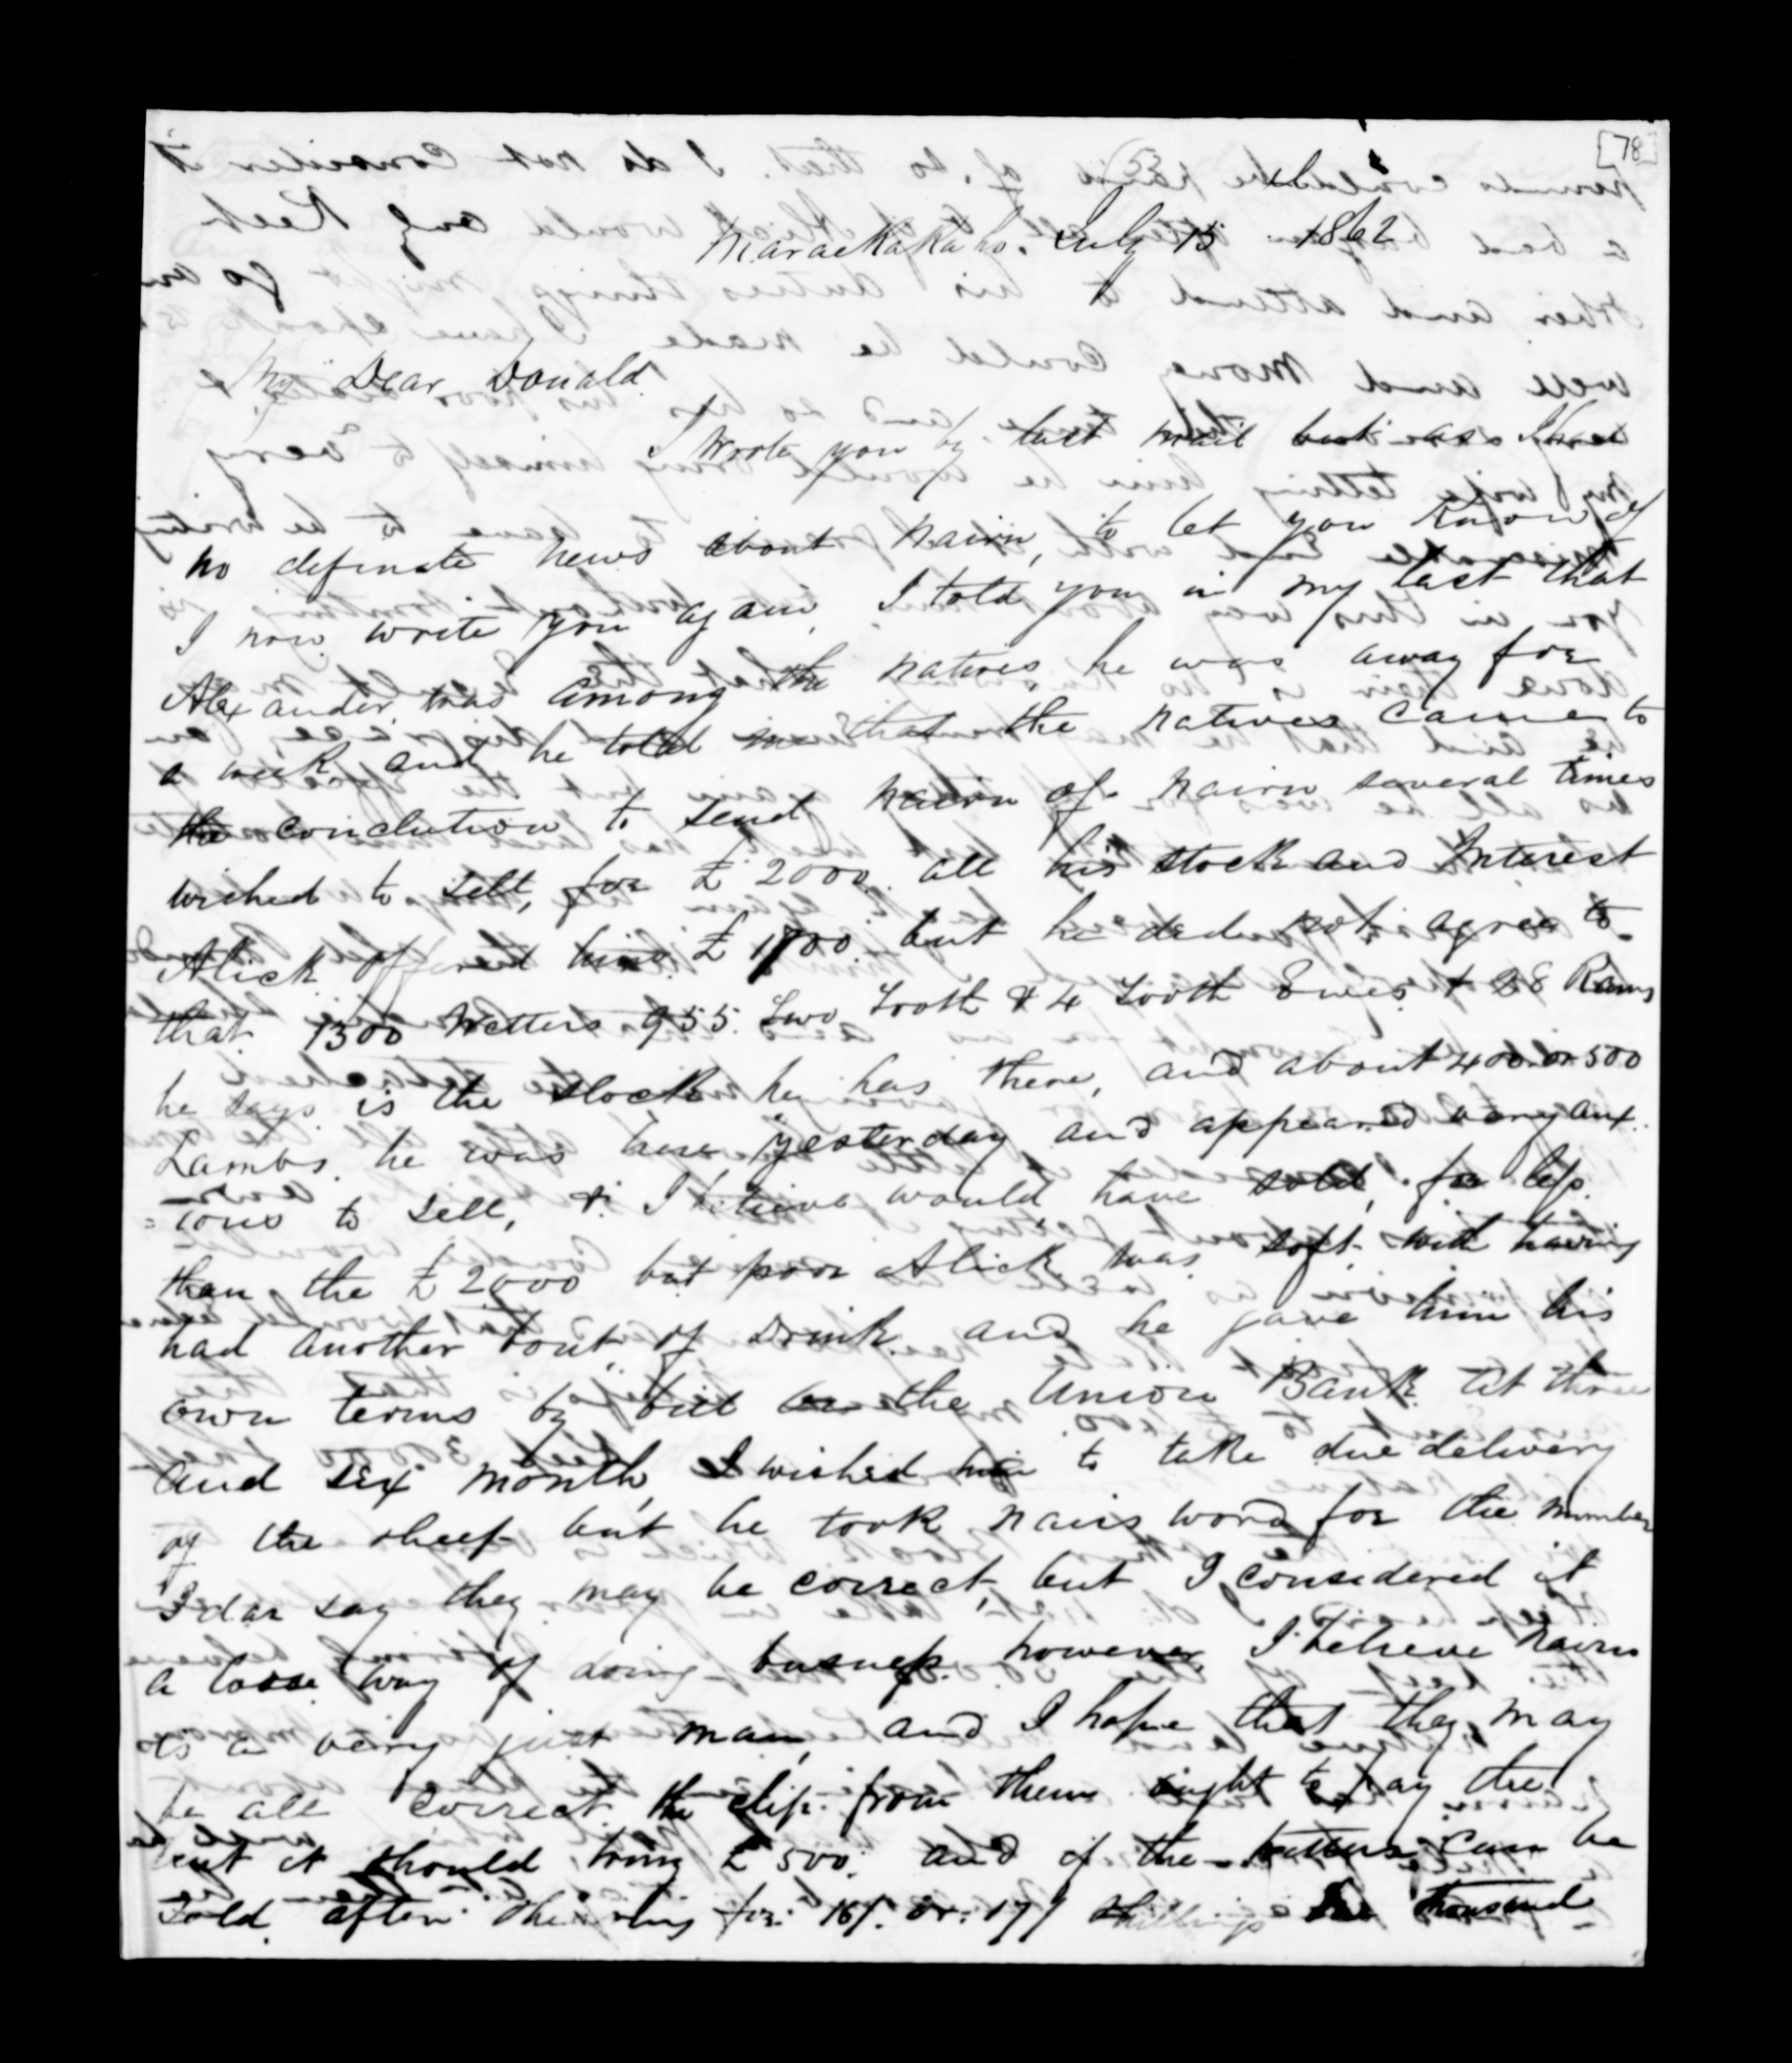 [78]
Maraekakaho. July 15 1862
My Dear Donald
I wrote you by last mail but as I had
no definate news about Nairn, to let you know of
I now write you again, I told you in my last that
Alexander was among the natives, he was away for
a week, and he told me that the natives came to
the conclution to send Nairn of. Nairn several times
wished to sell, for £2000. all his stock and Interest
Alick offered him £1700. but he did not agree to
that 1300 Wetters 955. Two Tooth & 4 Tooth Ewes & 28 Rams
he says is the stock he has there, and about 400 or 500
Lambs. he was here yesterday and appeared very anx
=ious to sell, & I believe would have sold, for less
than the £2000 but poor Alick was soft with having
had another bout of Drink. and he gave him his
own terms by bill on the Union Bank at three
and six month, I wished him to take due delivery
of the sheep but he took Nairs word for the number
I dar say they may be correct, but I considered it
a loose way of doing busness. however, I believe Nairn
is a very just man, and I hope that they may
be all correct. the clip from them ought to pay the
it should bring £500. and if the wetters can be
sold after shearing for 16/. or. 17/ shillings thousand